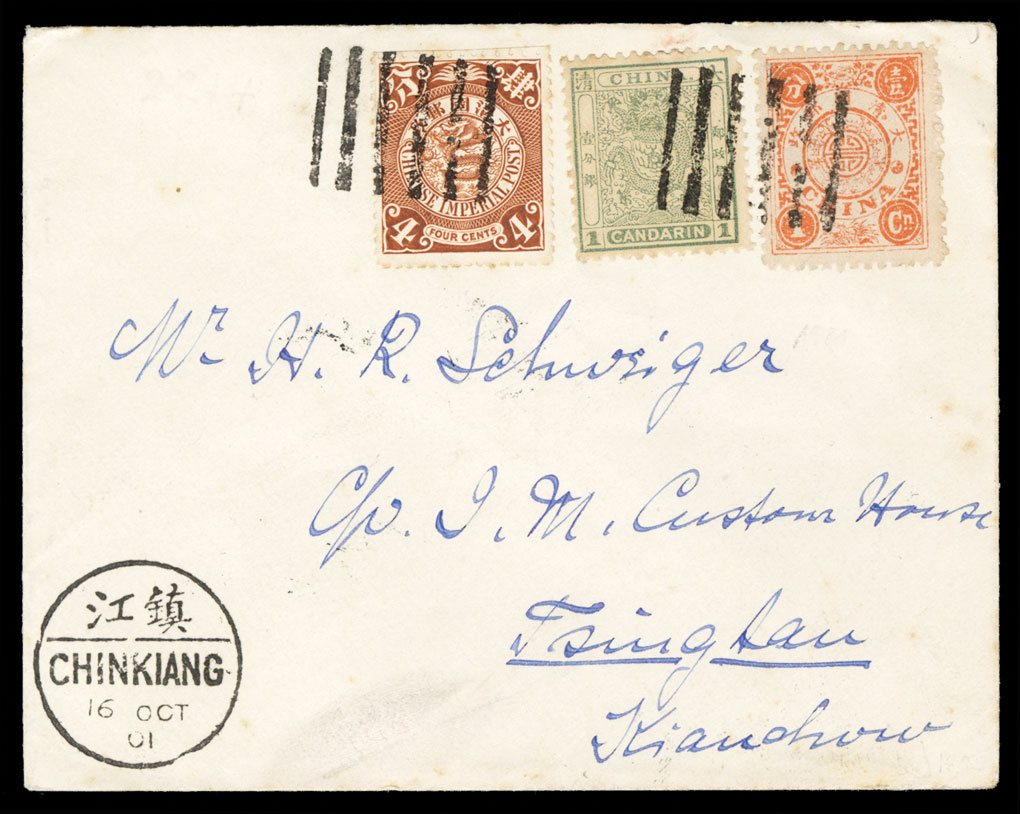 分 肆
大清國郵政
CHINESE IMPERIAL POST
4 FOUR CENTS 4
清 CHINA 大
郵政局
壹分銀
1 CANDARIN 1
分 壹
CHINA
1 Cn
Mr H. R. Schweiger
C/o. I. M. Custom House
Tsingtau
Kiauchow
江鎮
CHINKIANG
16 OCT
01